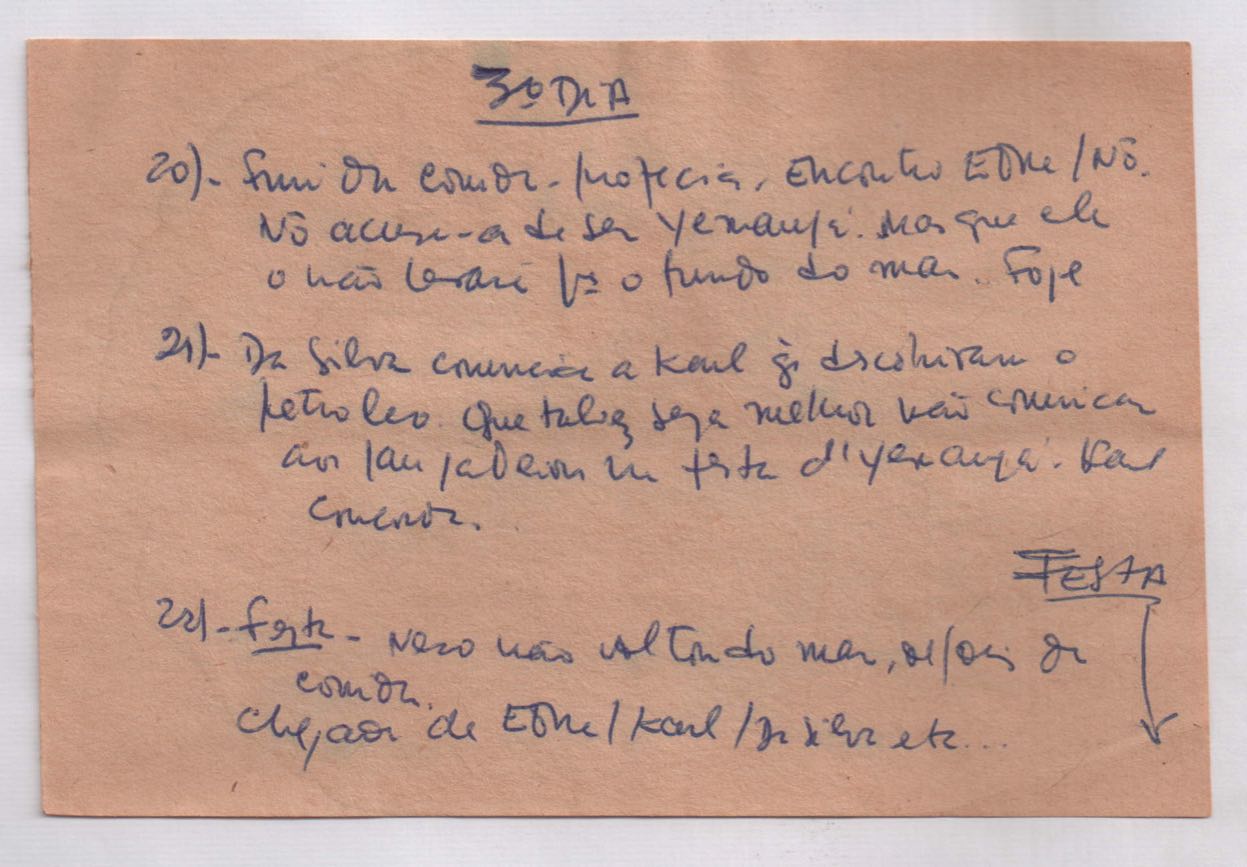 3º DIA
20)- da corrida - profecia. Encontro Edne/Nô.
Nô acusa-a de ser Yemanjá. Mas que ela
o não levará pª o fundo do mar. Foje
21)- Da Silva comunica a Karl q̃ descobriram o
petroleo. Que talvez seja melhor não comunicar
aos jangadeiros na festa d'Yemanjá. Karl
concorda.
FESTA
22)- Festa - não voltou do mar, depois da
corrida.
Chegada de Edne/Karl/Da Silva etc...